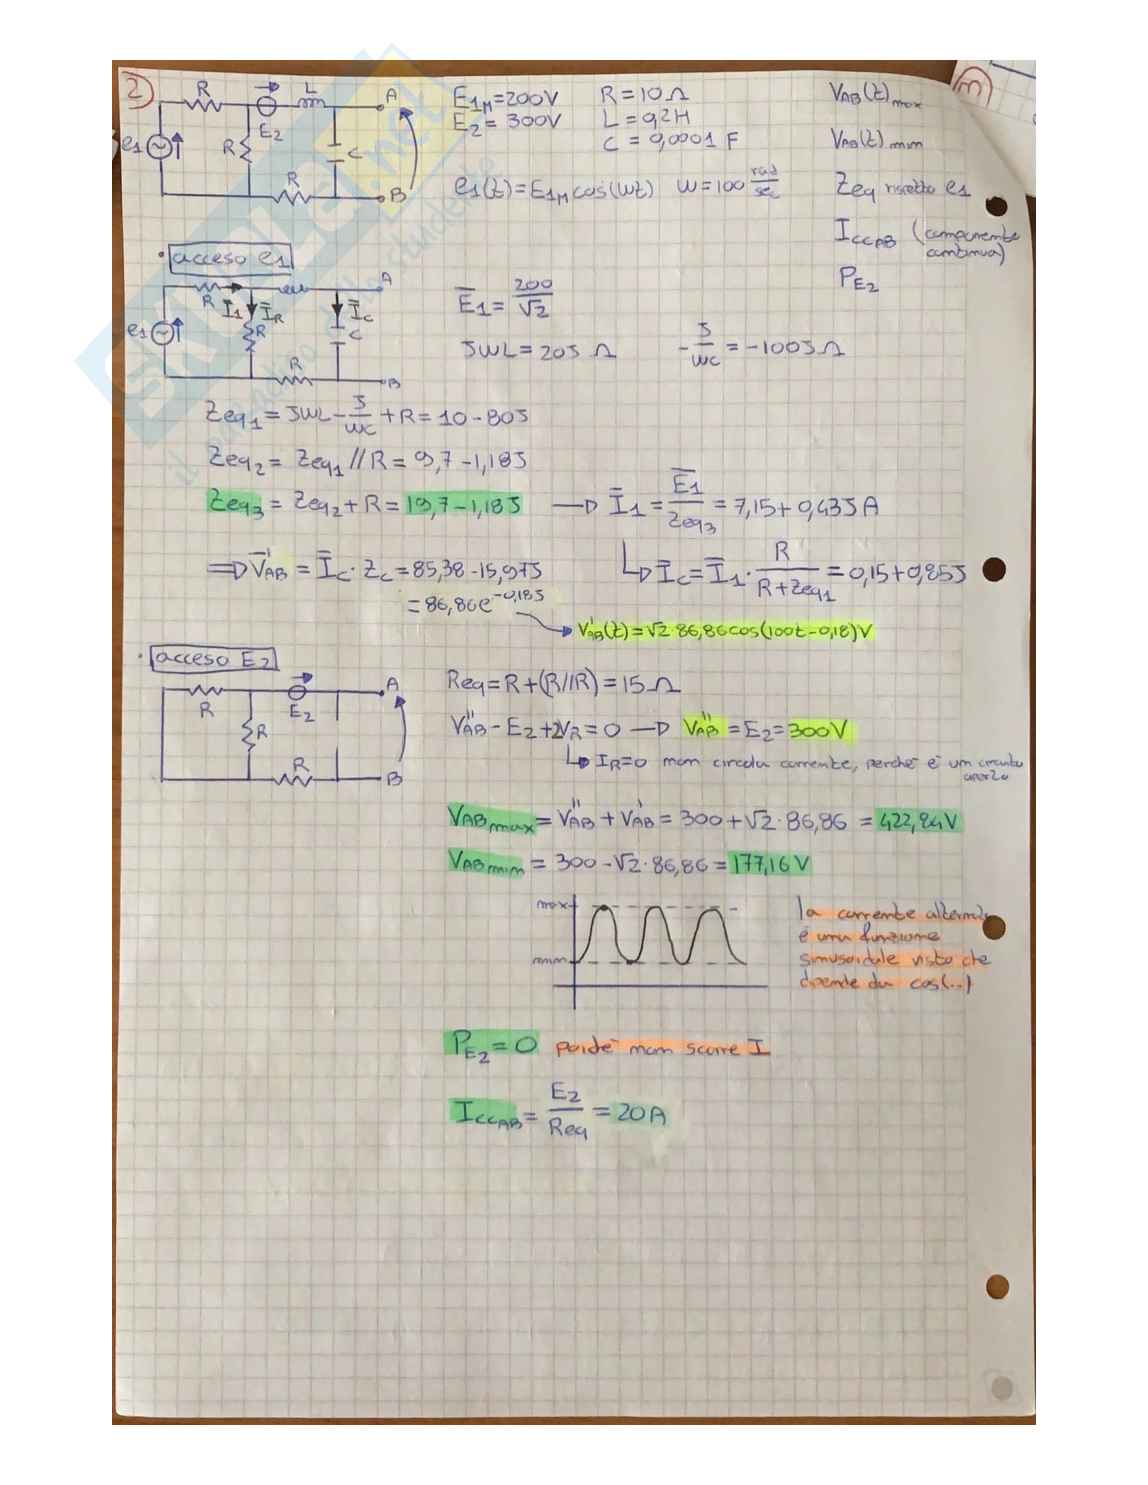 2)
R L A
E2
e1 R C
R B
E1M=200V R=10Ω VAB(t)max
E2= 300V L=0,2H
C=0,0001 F VAB(t)min
e1(t)=E1M cos(wt) w=100 rad/sec Zeq rispetto e1
ICCAB (componente continua)
PE2
• acceso e1
R I̅1 I̅R I̅C A
e1 R C
R B
E̅1= 200/√2
JWL=20J Ω -J/wc=-100J Ω
Zeq1=JWL-J/wc+R=10-80J
Zeq2= Zeq1//R=9,7-1,18J
Zeq3= Zeq2+R=19,7-1,18J → I̅1=E̅1/Zeq3=7,15+0,43J A
⇒ V̅'AB = I̅C · ZC=85,38-15,97J ↳ I̅C=I̅1·R/(R+Zeq1)=0,15+0,85J
=86,86e^-0,18J
V'AB(t)=√2·86,86cos(100t-0,18)V
• acceso E2
A
R E2
R
R B
Req=R+(R//R)=15Ω
V''AB-E2+2VR=0 → V''AB=E2=300V
↳ IR=0 non circola corrente, perchè è un circuito aperto
VABmax=V''AB+V'AB=300+√2·86,86 = 422,84V
VABmin = 300-√2·86,86=177,16V
max
min
la corrente alternata
è una funzione
sinusoidale visto che
dipende da cos(..)
PE2=0 poichè non scorre I
ICCAB=E2/Req=20A
SKUOLA.net
il paradiso dello studente